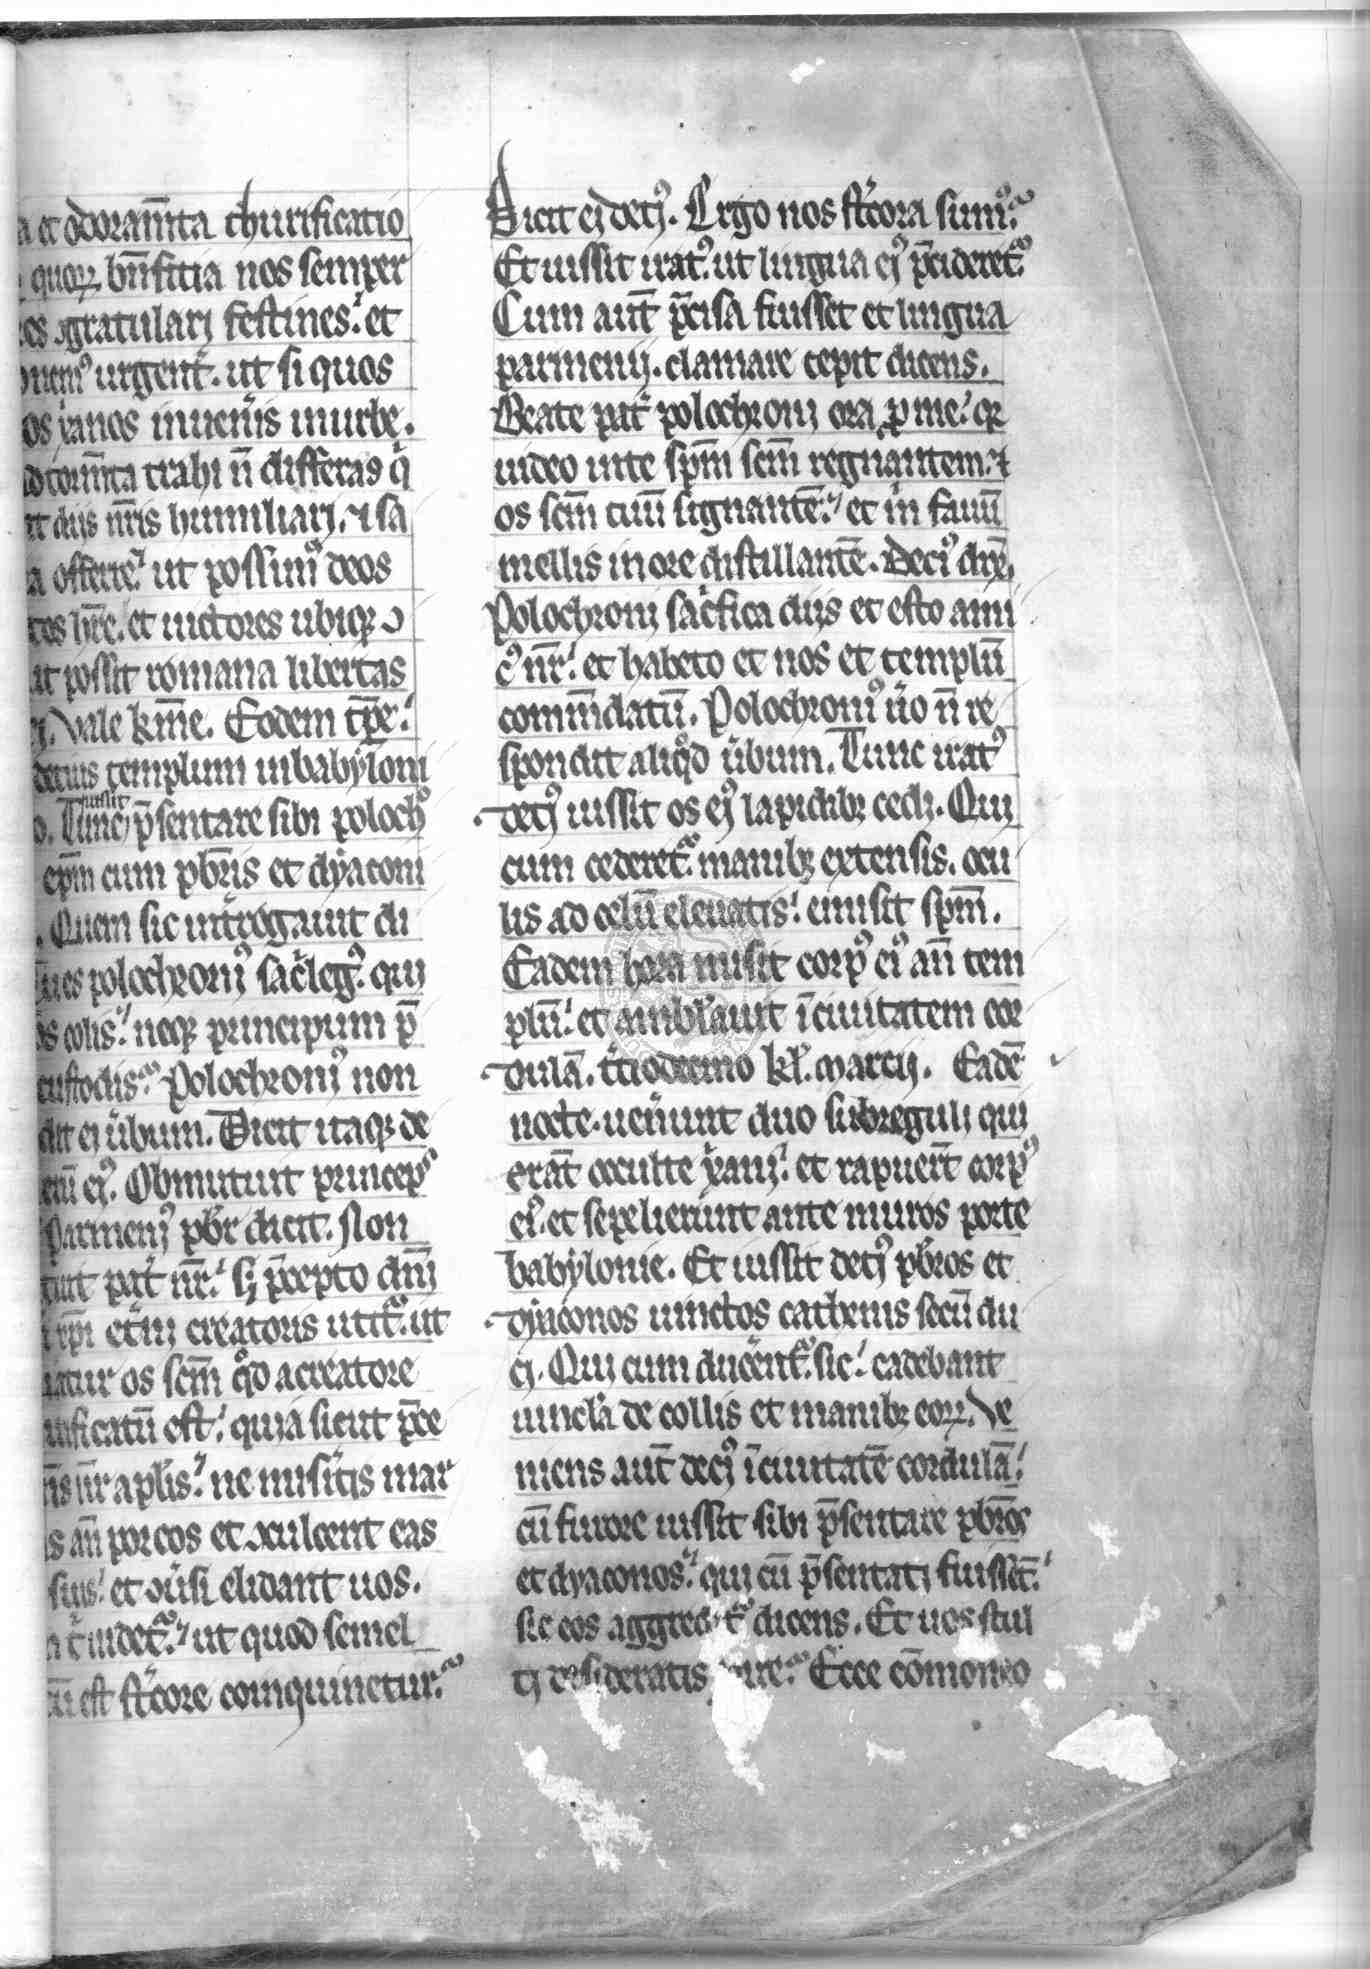 a et odoram̅ta thurificatio
quoꝝ bn̅fitia nos semper
os ꝯgratulari festines. et
urgent᷑. ut si quos
os xp̅ianos inuen̾is in urbe.
torm̅ta trahi n̅ differas q
diis nr̅is humiliari. ⁊ sa
a offerre. ut possimꝰ deos
tos hr̅e. et uictores ubiqꝫ ꝯ
ut possit romana libertas
. Vale km̅e. Eodem tp̅re.
decius templum in babyloni
iussit
o. Tunc p̅sentare sibi polochꝰ
ep̅m cum pbr̅is et dyaconi
. Quem sic int̾rogauit di
es polochroniꝰ sac̾legꝰ. qui
os colis. neqꝫ principum p̅
custodis. Polochroniꝰ non
dit ei u̾bum. Dicit itaqꝫ de
eiꝰ. Obmutuit princeps
Parmeniꝰ pbr̅ dicit. Non
pat̾ nr̅. sꝫ p̅cepto dn̅i
xp̅i et̾ni creatoris utit᷑. ut
os sc̅m qd̊ a creatore
ificatu̅ est. quia sicut p̅ce
nr̅ apl̅is. ne miseritis mar
s an̅ porcos et ꝯculcent eas
suis. et ꝯu̾si elidant uos.
uidet᷑. ut quod semel
est st̾core coinquinetur.
Dicit ei deciꝰ. Ergo nos st̾cora sumꝰ.
Et iussit iratꝰ. ut lingua eiꝰ p̅cideret᷑.
Cum aut̅ p̅cisa fuisset et lingua
parmenii. clamare cepit dicens.
Beate pat̾ polochroni ora p̲ me. qꝛ
uideo in te sp̅m sc̅m regnantem. ⁊
os sc̅m tuu̅ signante̅. et in̾ fauu̅
mellis in ore distillante̅. Deciꝰ dix̅.
Polochroni sac̾fica diis et esto ami
cꝰ nr̅. et habeto et nos et templu̅
comm̅datu̅. Polochroniꝰ u̾o n̅ re
spondit aliqd̊ u̾bum. Tunc iratꝰ
deciꝰ iussit os eiꝰ lapidibꝫ cedi. Qui
cum cederet᷑ manibꝫ extensis. ocu
lis ad celu̅ eleuatis. emisit sp̅m.
Eadem hora misit corpꝰ eiꝰ an̅ tem
plu̅. et ambl̾auit i̅ ciuitatem cor
dula̅. t̾ciodecimo kl̾. marcii. Eade̅
nocte. uen̾unt duo subreguli qui
erant occulte xp̅iani. et rapuer̅t corpꝰ
eiꝰ. et sepelierunt ante muros porte
babylonie. Et iussit deciꝰ pbr̅os et
dyaconos uinctos cathenis secu̅ du
ci. Qui cum ducent᷑ sic. cadebant
uincl̾a de collis et manibꝫ eoꝝ. Ve
niens aut̅ deciꝰ i̅ ciuitate̅ cordula̅.
cu̅ furore iussit sibi p̅sentare pbr̅os
et dyaconos. qui cu̅ p̅sentati fuisse̅t.
sic eos dicens. Et uos stul
ti desideratis Ecce co̅moneo